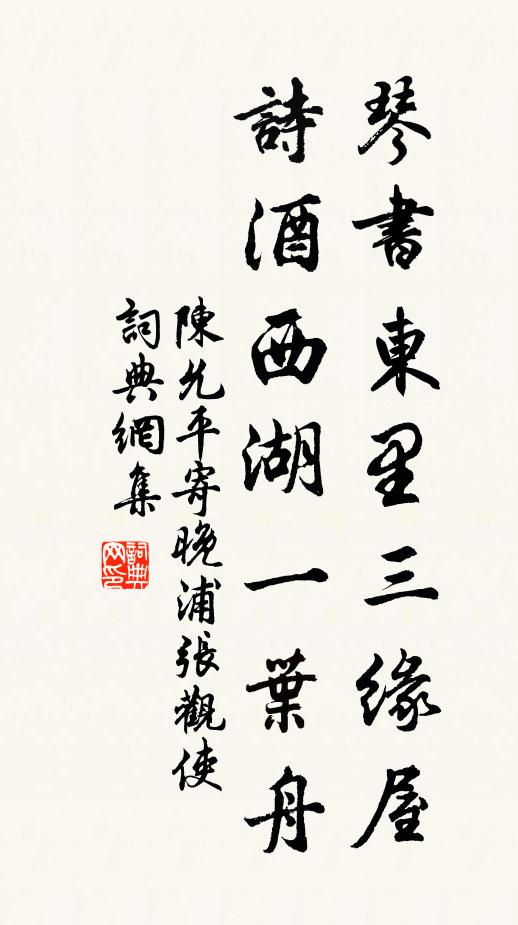 琴書東里三緣屋
詩酒西湖一葉舟
陳允平寄晚浦張觀使
詞典網集
詞典
网印